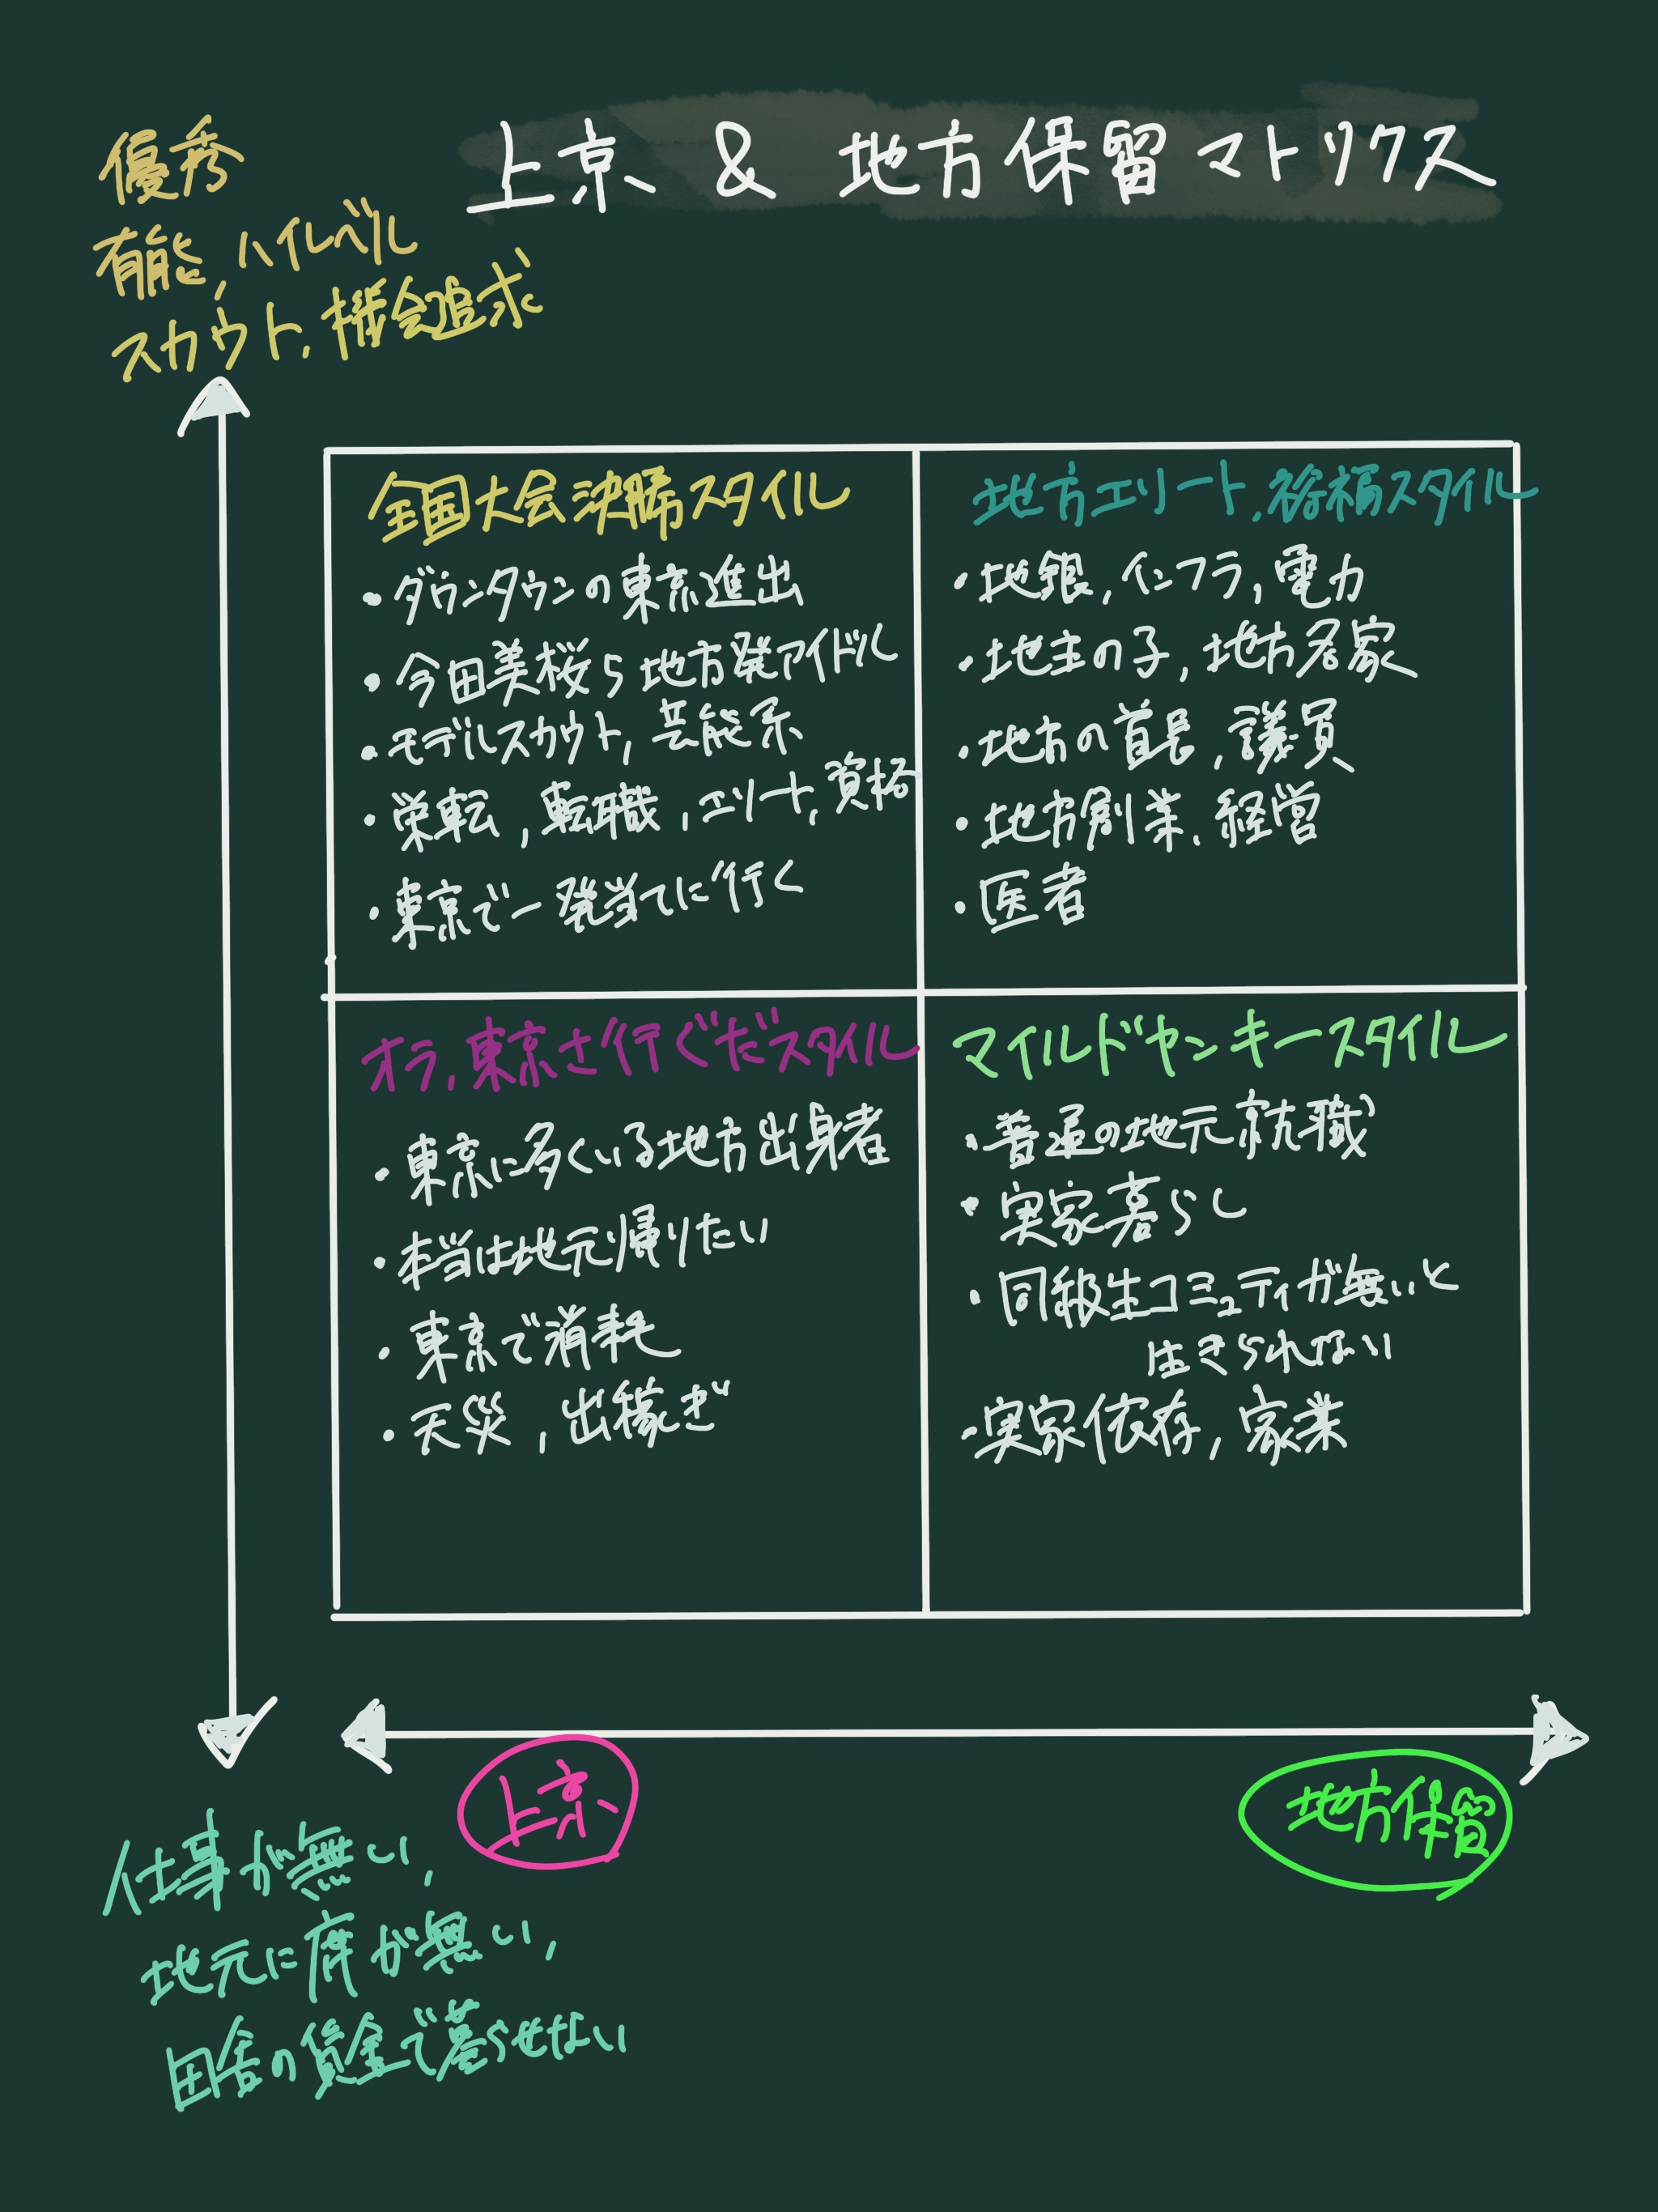 上京 & 地方保留マトリクス
優秀
有能,ハイレベル
スカウト,機会追求
全国大会決勝スタイル
・ダウンタウンの東京進出
・今田美桜ら地方発アイドル
・モデルスカウト,芸能系
・栄転,転職,エリート,資格
・東京で一発当てに行く
地方エリート,裕福スタイル
・地銀,インフラ,電力
・地主の子,地方名家
・地方の首長,議員
・地方創業,経営
・医者
オラ,東京さ行ぐだスタイル
・東京に多くいる地方出身者
・本当は地元帰りたい
・東京で消耗
・天災,出稼ぎ
マイルドヤンキースタイル
・普通の地元就職
・実家暮らし
・同級生コミュティが無いと
生きられない
・実家依存,家業
上京
地方保留
仕事が無い,
地元に席が無い,
田舎の賃金で暮らせない